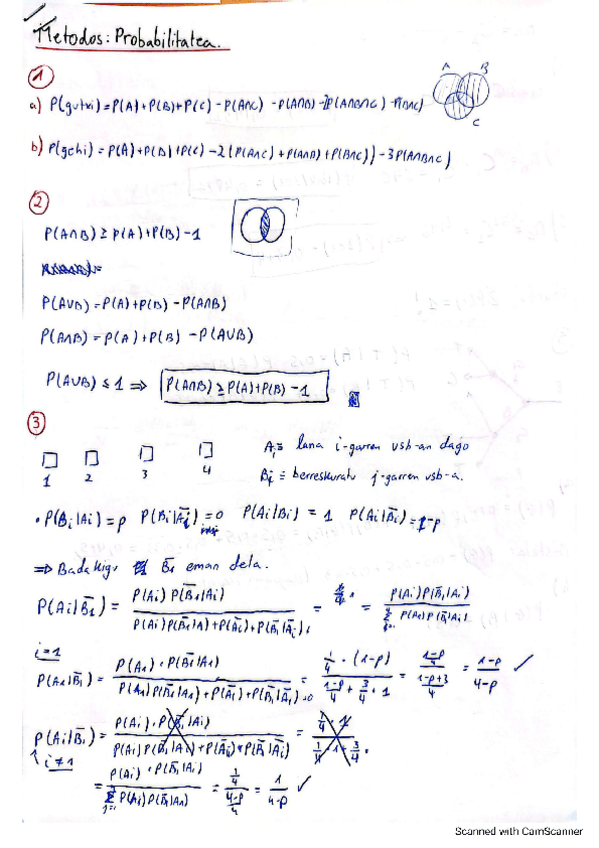 Metodos: Probabilitatea.
1
a) P(gutxi) = P(A) + P(B) + P(C) - P(A∩C) - P(A∩B) - 2P(A∩B∩C) - P(B∩C)
A B
C
b) P(gehi) = P(A) + P(B) + P(C) - 2(P(A∩C) + P(A∩B) + P(B∩C)) - 3P(A∩B∩C)
2
P(A∩B) ≥ P(A) + P(B) - 1
P(A∪B) = P(A) + P(B) - P(A∩B)
P(A∩B) = P(A) + P(B) - P(A∪B)
P(A∪B) ≤ 1 ⟹ P(A∩B) ≥ P(A) + P(B) - 1
3
1 2 3 4
Ai ≡ lana i-garren usb-an dago
Bj ≡ berreskuratu j-garren usb-a.
· P(Bi|Ai) = p P(Bi|Āj) = 0 P(Ai|Bi) = 1 P(Ai|B̄i) = 1-p
⟹ Badakigu B̄1 eman dela.
P(Ai|B̄1) = P(Ai) P(B̄1|Ai) / = = P(Ai) P(B̄1|Ai) /
i=1
P(A1|B̄1) = P(A1) · P(B̄1|A1) / P(A1) P(B̄1|A1) + P(Ā1) + P(B̄1|Ā1) = 1/4 · (1-p) / (1-p)/4 + 3/4 · 1 = (1-p)/4 / (1-p+3)/4 = 1-p / 4-p ✓
P(Ai|B̄1) =
i≠1
= P(Ai) · P(B̄1|Ai) / Σ P(Ai) P(B̄1|Ai) = 1/4 / (4-p)/4 = 1 / 4-p ✓
Scanned with CamScanner